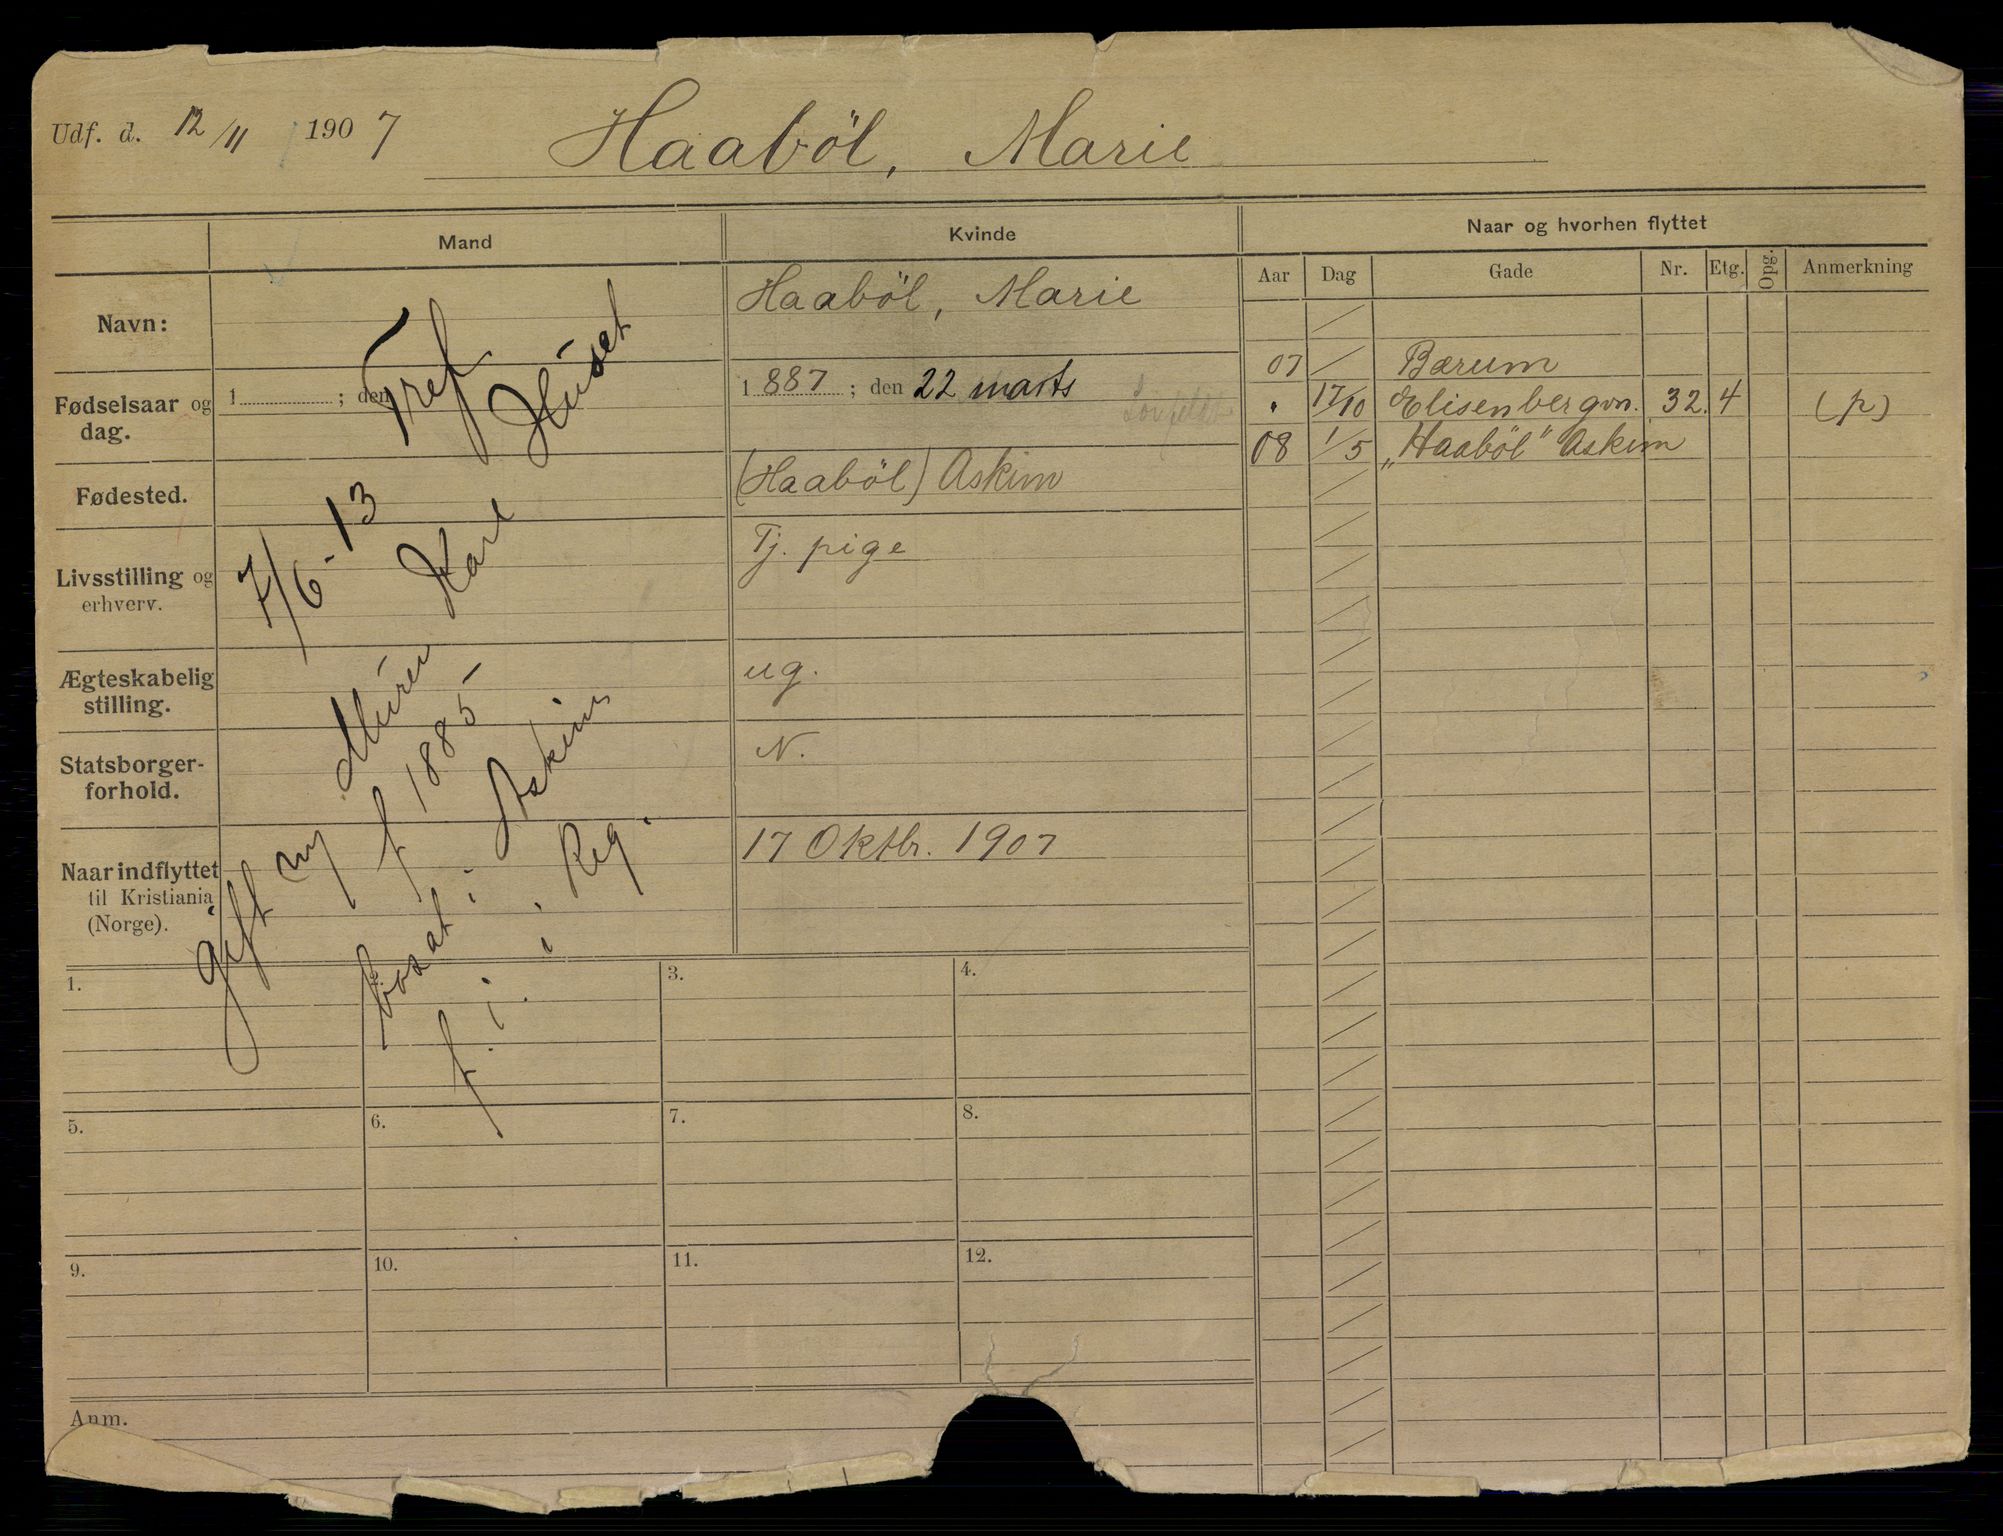 Udf. d. 12/11 1907
Haaböl, Marie
Mand
Kvinde
Naar og hvorhen flyttet
Aar Dag Gade Nr. Etg. Opg. Anmerkning
Navn:
Haaböl, Marie
Fødselsaar og
dag.
1 ; den
1 887 ; den 22 marts
Fødested.
(Haaböl) Askim
Livsstilling og
erhverv.
Tj. pige
Ægteskabelig
stilling.
ug.
Statsborger-
forhold.
N.
Naar indflyttet
til Kristiania
(Norge).
17 Oktbr. 1907
07 Bærum
" 17/10 Elisenbergvn. 32. 4 (p)
08 1/5 „Haaböl" Askim
7/6-13 Tref
gift m Muren Karl Huset
f 1885
bosat i Askim
f. i. i Reg.
1.
2.
3.
4.
5.
6.
7.
8.
9.
10.
11.
12.
Anm.